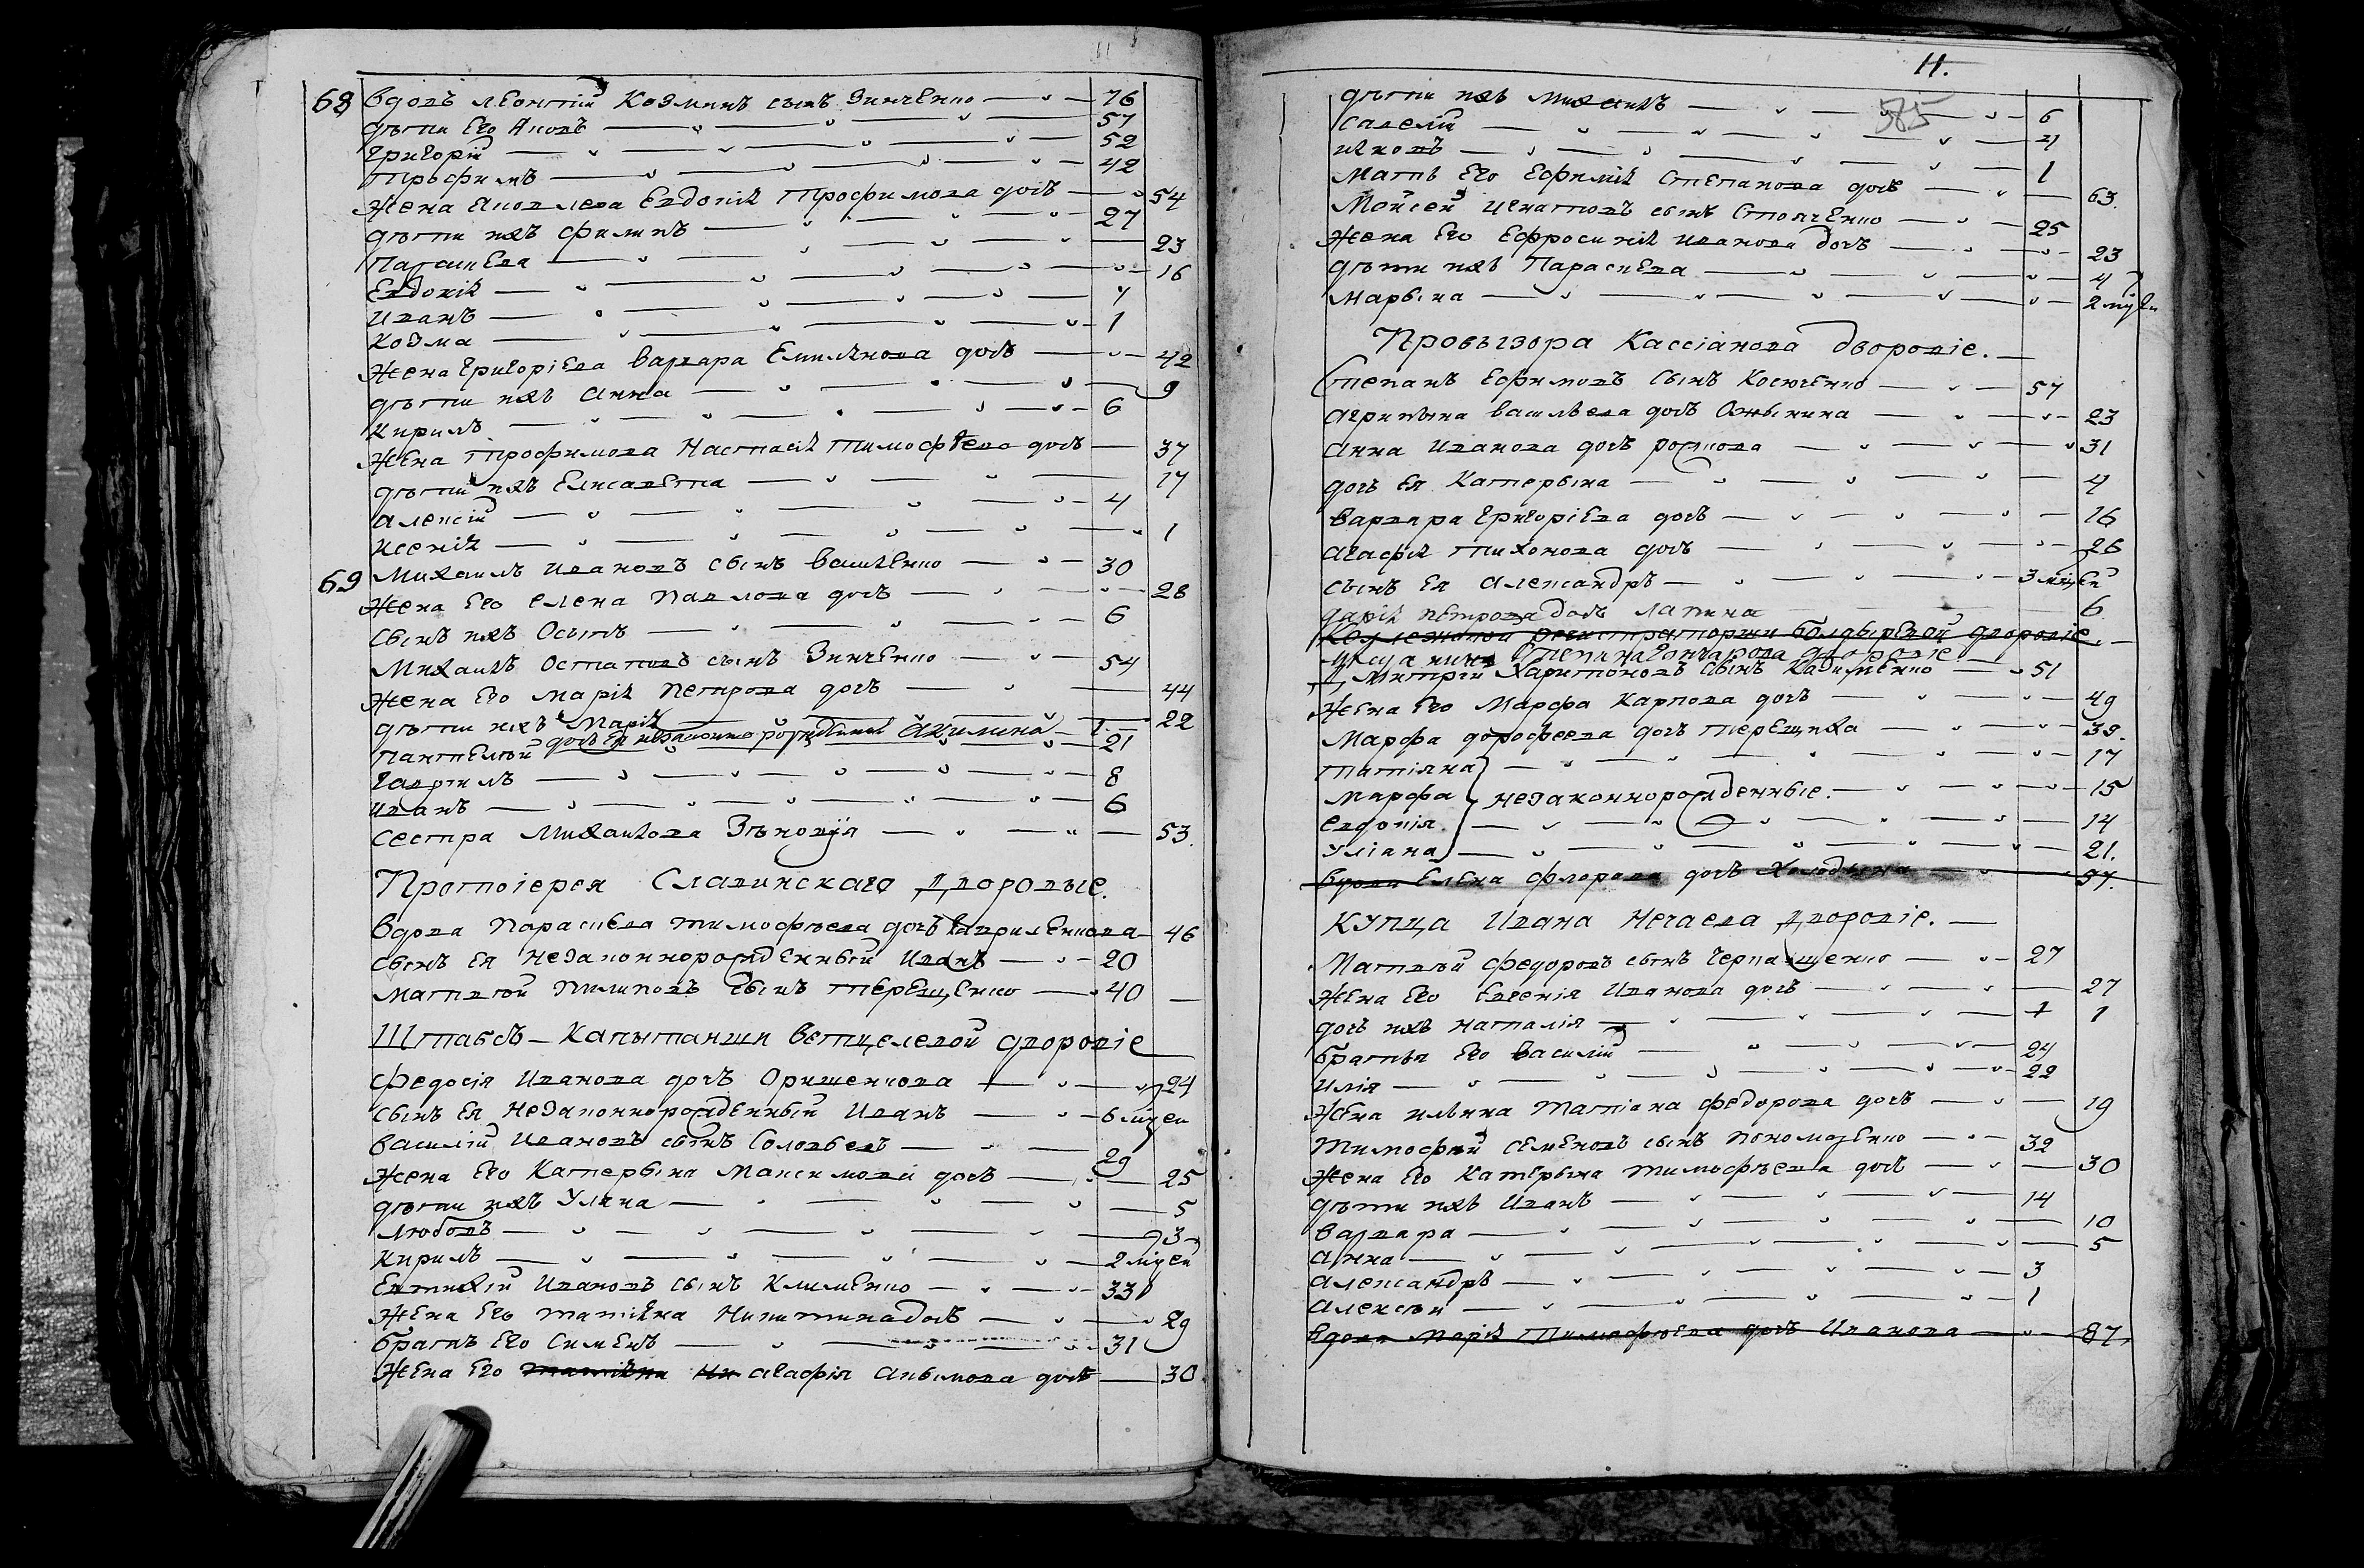 68 вдовъ леонтий Козминъ сынъ Зинченко 76
дѣти Его Яковъ 57
григорий 52
трофимъ 42
Жена Яковлева Евдокия Трофимова дочь 54
дѣти ихъ филипъ 27
параскева 23
Евдокия 16
иванъ 4
козма 1
Жена григориева варвара Емилянова дочь 42
дѣти ихъ анна 9
кирилъ 6
Жена трофимова Настасия тимофѣева дочь 37
дѣти ихъ Елисавета 17
алексий 4
ксения 1
69 Михаилъ ивановъ сынъ василенко 30
Жена Его елена павлова дочь 28
сынъ ихъ Осипъ 6
Михаилъ Остаповъ сынъ Зинченко 54
Жена Его мария петрова дочь 44
дѣти ихъ Мария 22
дочь Ея незаконно рожденная Акилина 1
пантелей 21
гаврилъ 8
иванъ 6
сестра Михаилова Зѣновія 53.
Протоіерея Славинскаго Дворовые.
вдова Параскева тимофѣева дочь гавриленкова 46
сынъ Ея незаконнорожденный Иванъ 20
матвей пилиповъ сынъ терещенко 40
Штабсъ-Капытанши ветцелевой дворовіе
федосія Иванова дочь Орищенкова 24
сынъ Ея незаконнорожденный Иванъ 6 мцеи
василій Ивановъ сынъ Соловьевъ 29
Жена Его Катерына Максимова дочь 25
дѣти ихъ Уляна 5
любовъ 3
кирилъ 2 мцей
Евтихій Ивановъ сынъ Клименко 33
Жена Его татияна Никитина дочь 29
братъ Его Сименъ 31
Жена Его агафія Акимова дочь 30
11.
585
дѣти ихъ михаилъ 6
савелій 4
иковъ 1
мать Его Ефимия степанова дочь 63.
Мойсей игнатовъ сынъ Стояченко 25
Жена Его Ефросиния иванова дочь 23
дѣти ихъ Параскева 4
марына 2 мцеи
Провызора Кассіанова дворовіе.
Степанъ ефимовъ сынъ Косюченко 57
агрипына васильева дочь 23
анна иванова дочь 31
дочь Ея Катерына 4
варвара григоріева дочь 16
агафия тихонова дочь 26
сынъ Ея александръ 3 мцей
дария петрова дочь лапина 6
Колежской регистраторши болдыревой дворовіе.
Степана гончарова дворовіе
Дмитрій Харитоновъ сынъ 51
Жена Его Марфа Карпова дочь 49
Марфа дорофеева дочь терещиха 39.
татіяна 17
марфа незаконнорожденные. 15
евдокія. 14
уліана 21.
вдова Елена флорова дочь 57.
Купца Ивана Нечаева Дворовіе.
Матвѣй федоровъ сынъ Черпащенко 27
Жена Его Евгенія Иванова дочь 27
дочь ихъ наталія 1
братья Его василій 24
илія 22
Жена ильина татіана федорова дочь 19
тимофѣй семеновъ сынъ пономаренко 32
Жена Его катерына тимофѣева дочь 30
дѣти ихъ Иванъ 14
варвара 10
анна 5
александръ 3
алексѣй 1
вдова Мария тимофѣева дочь Иванова 87.